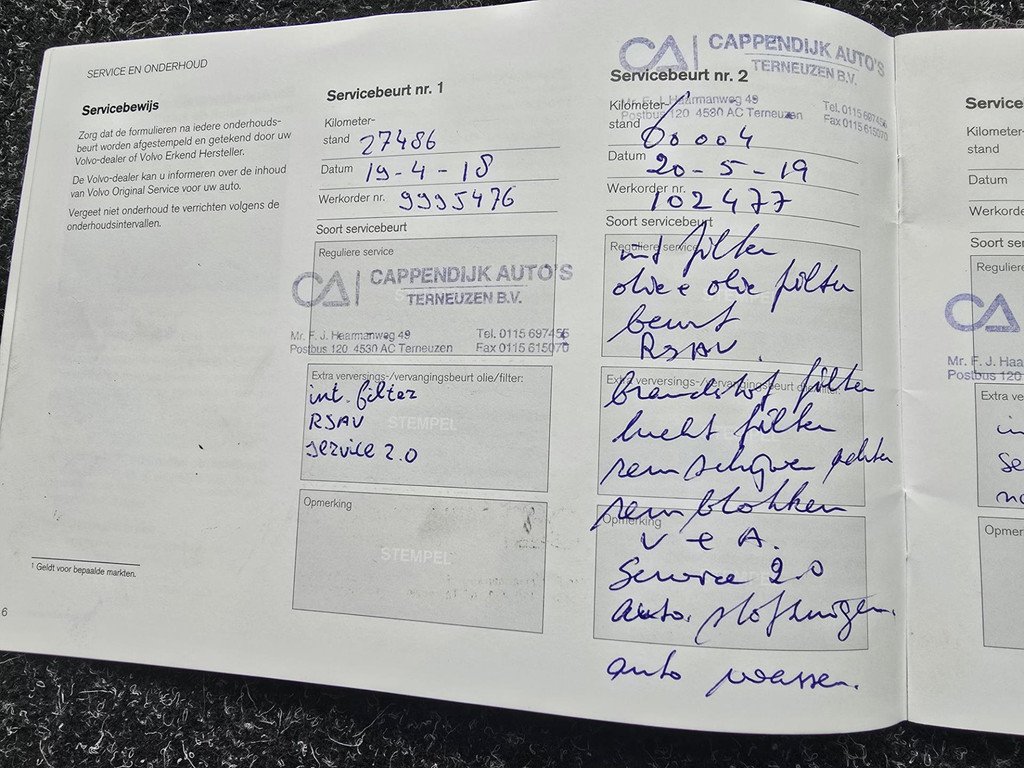 SERVICE EN ONDERHOUD
Servicebewijs
Zorg dat de formulieren na iedere onderhouds-
beurt worden afgestempeld en getekend door uw
Volvo-dealer of Volvo Erkend Hersteller.
De Volvo-dealer kan u informeren over de inhoud
van Volvo Original Service voor uw auto.
Vergeet niet onderhoud te verrichten volgens de
onderhoudsintervallen.
1 Geldt voor bepaalde markten.
6
Servicebeurt nr. 1
Kilometer-
stand 27486
Datum 19-4-18
Werkorder nr. 9995476
Soort servicebeurt
Reguliere service
CA CAPPENDIJK AUTO'S
TERNEUZEN B.V.
Mr. F. J. Haarmanweg 49 Tel. 0115 697455
Postbus 120 4530 AC Terneuzen Fax 0115 615070
Extra verversings-/vervangingsbeurt olie/filter:
int. filter
RSAV
STEMPEL
service 2.0
Opmerking
STEMPEL
CA CAPPENDIJK AUTO'S
TERNEUZEN B.V.
Servicebeurt nr. 2
Mr. F. J. Haarmanweg 49 Tel. 0115 697455
Postbus 120 4530 AC Terneuzen Fax 0115 615070
Kilometer-
stand 60004
Datum 20-5-19
Werkorder nr. 102477
Soort servicebeurt
Reguliere service
int filter
olie + olie filter
beurt
RSAV.
Extra verversings-/vervangingsbeurt olie/filter:
brandstof filter
lucht filter
remschijven achter
remblokken
Opmerking
V + A.
Service 2.0
auto. stofzuigen.
auto wassen.
Service
Kilometer-
stand
Datum
Werkorde
Soort ser
Reguliere
CA
Mr. F. J. Haa
Postbus 120
Extra ve
in
Se
Opmer